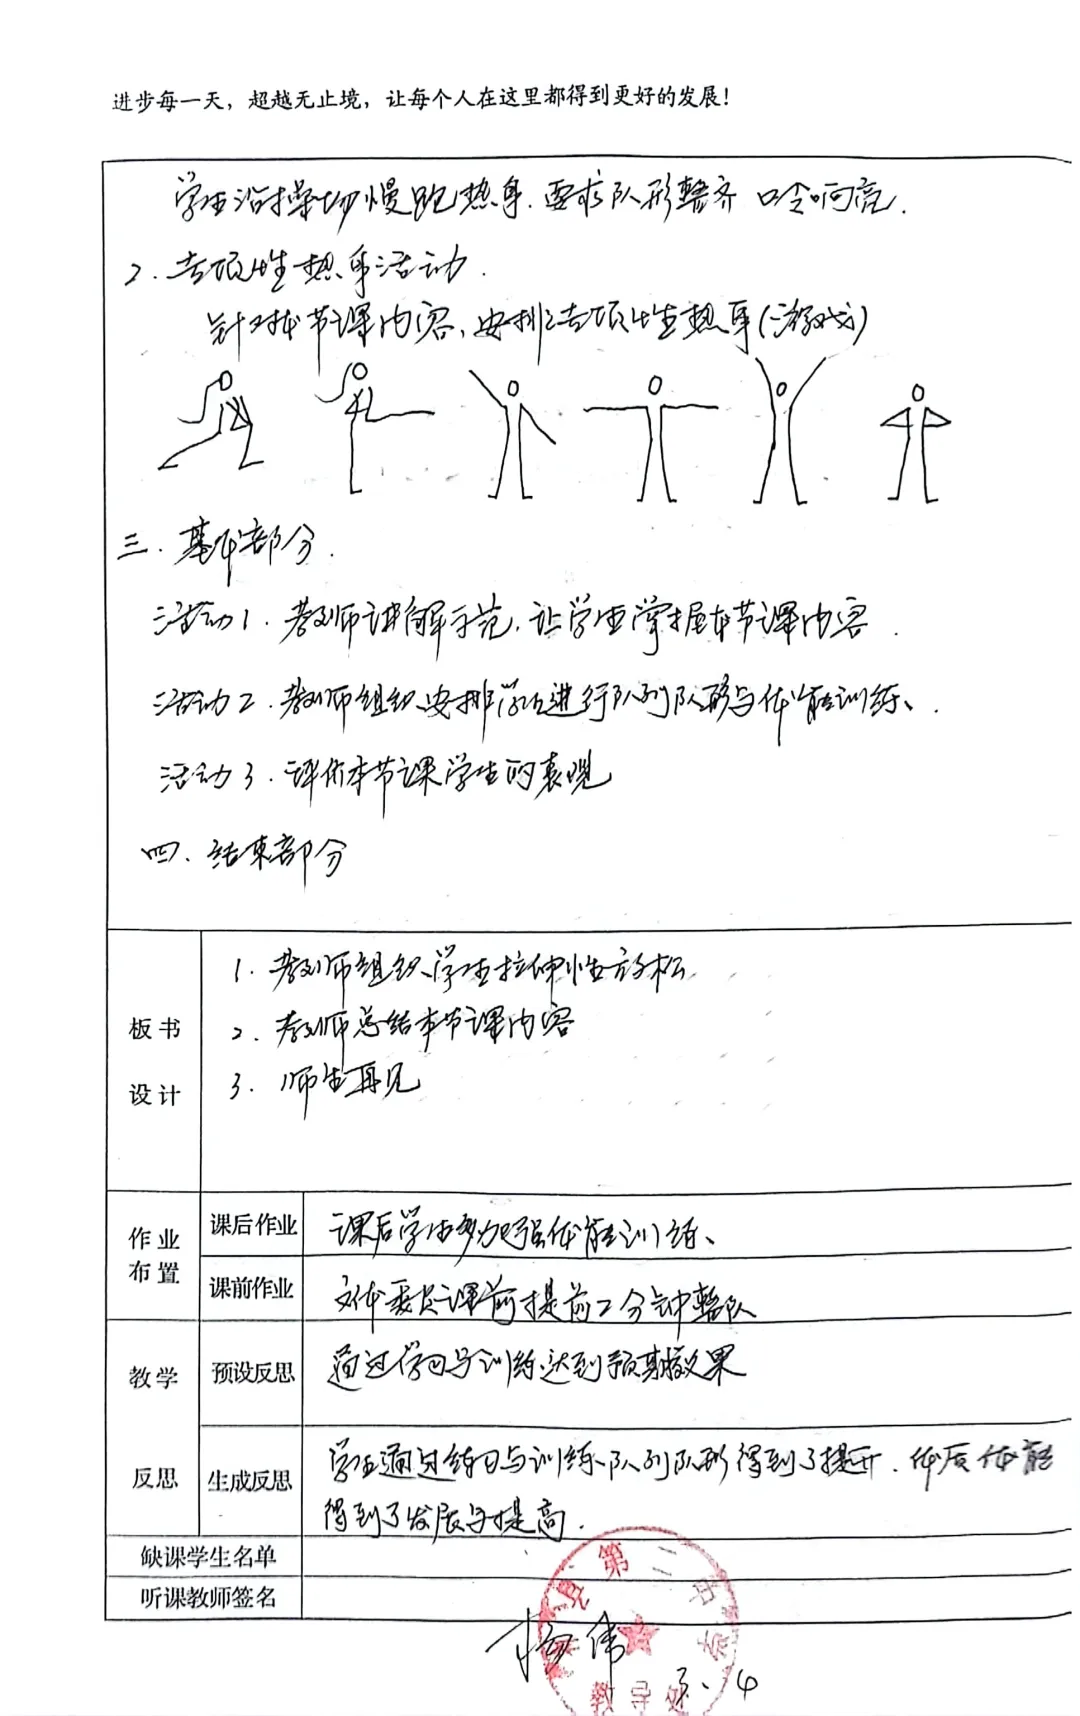 进步每一天，超越无止境，让每个人在这里都得到更好的发展！
学生沿操场慢跑热身.要求队形整齐 口令响亮.
2.专项性热身活动.
针对本节课内容,安排专项性热身(游戏)
三.基本部分.
活动1.教师讲解示范,让学生掌握本节课内容.
活动2.教师组织安排学生进行队列队形与体能训练、.
活动3.评价本节课学生的表现
四.结束部分
板书设计
1.教师组织学生拉伸性放松
2.教师总结本节课内容
3.师生再见
作业布置
课后作业 课后学生多加强体能训练、
课前作业 文体委员课前提前2分钟整队
教学反思
预设反思 通过学习与训练达到预期效果
生成反思 学生通过练习与训练、队列队形得到了提升.体质体能
得到了发展与提高.
缺课学生名单
听课教师签名
第二中
杨伟
教导处
3.4